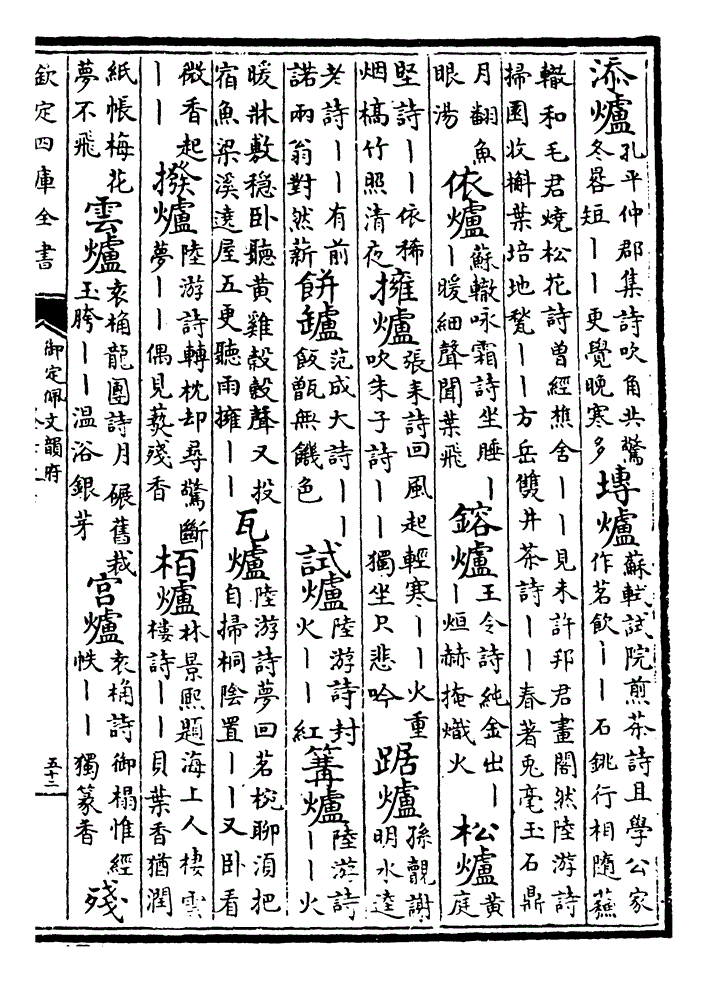 添爐孔平仲郡集詩吹角共驚冬晷短丨丨更覺晚寒多塼爐蘇軾試院煎茶詩且學公家作茗飲丨丨石銚行相隨蘇
轍和毛君燒松花詩曾經樵舍丨丨見未許邦君畫閣然陸游詩掃園收槲葉培地甃丨丨方岳雙井茶詩丨丨春著兎毫玉石鼎
月翻魚眼湯依爐蘇轍咏霜詩坐睡丨丨暖細聲聞葉飛鎔爐王令詩純金出丨丨烜赫掩熾火松爐黄庭
堅詩丨丨依稀烟槁竹照清夜擁爐張耒詩回風起輕寒丨丨火重吹朱子詩丨丨獨坐只悲吟踞爐孫覿謝明水逵
老詩丨丨有前諾兩翁對然薪餅罏范成大詩丨丨飯甑無饑色試爐陸游詩封火丨丨紅篝爐陸游詩丨丨火
暖牀敷穏卧聽黄雞殻殻聲又投宿魚梁溪遶屋五更聽雨擁丨丨瓦爐陸游詩夢回茗椀聊須把自掃桐陰置丨丨又卧看
微香起丨丨撥爐陸游詩轉枕却尋驚斷夢丨丨偶見爇殘香栢爐林景熙題海上人棲雲樓詩丨丨貝葉香猶潤
紙帳梅花夢不飛雲爐袁桷龍團詩月碾舊裁玉胯丨丨溫浴銀芽宫爐袁桷詩御榻惟經帙丨丨獨篆香殘
欽定四庫全書
御定佩文韻府
五十二